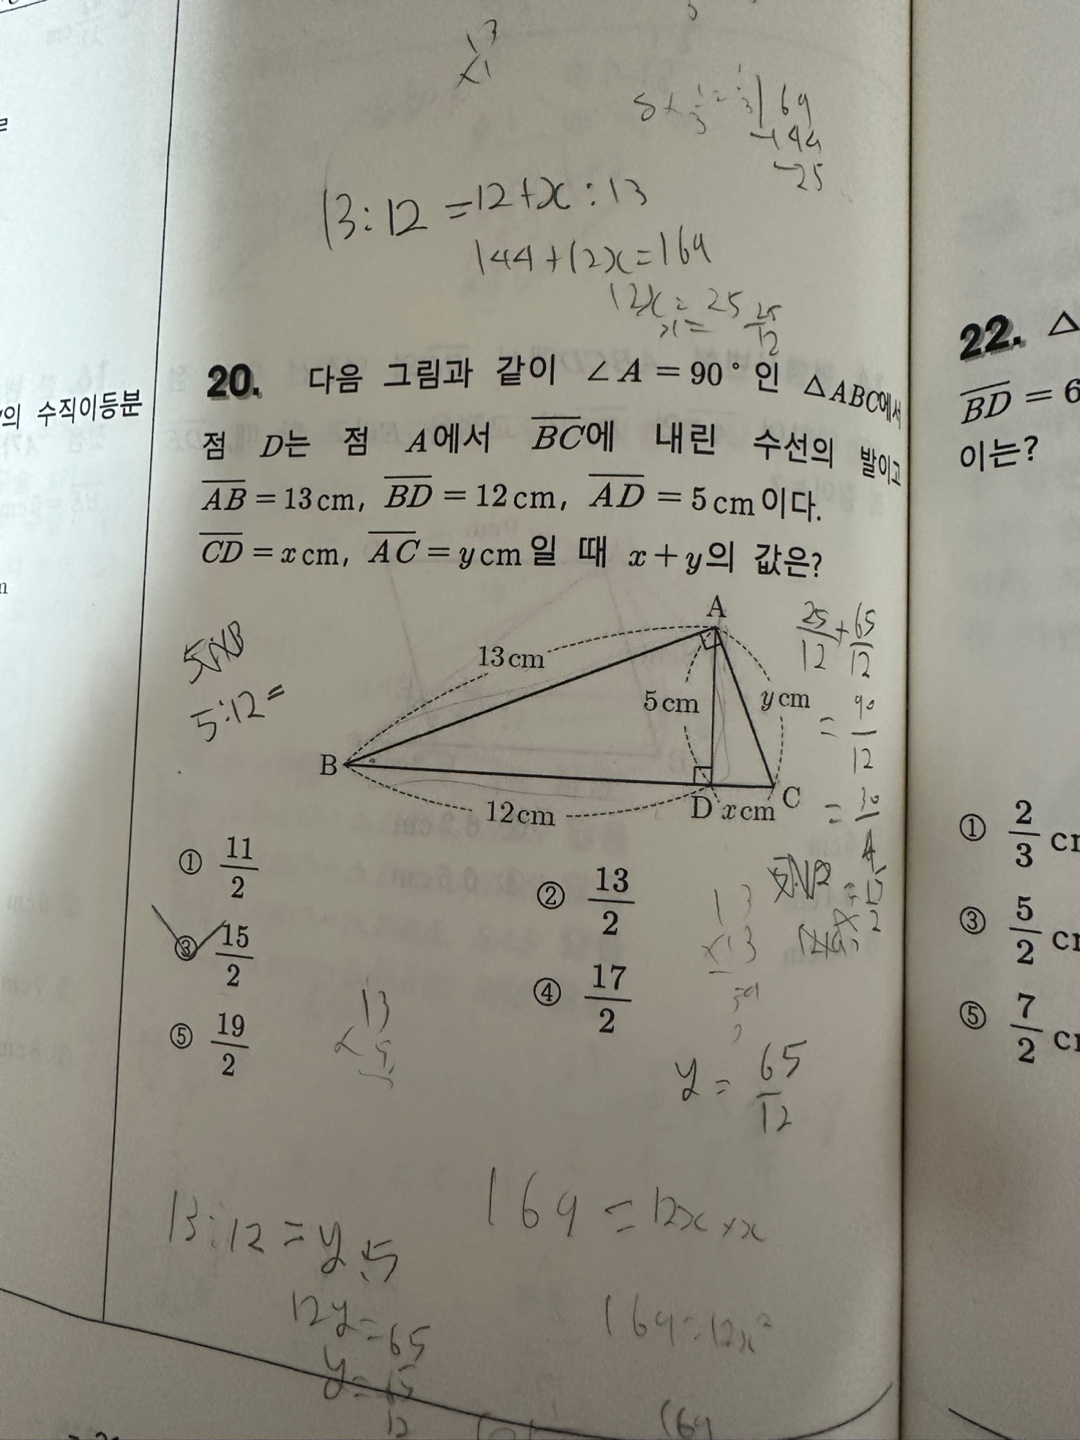 13:12 = 12+x : 13
144+12x=169
12x = 25
x= 25/12
169
-144
25
20. 다음 그림과 같이 ∠A = 90°인 △ABC에서
점 D는 점 A에서 BC에 내린 수선의 발이고
AB = 13cm, BD = 12cm, AD = 5cm이다.
CD = x cm, AC = y cm일 때 x+y의 값은?
5:12=
A
13cm
5cm
y cm
B
12cm
D
x cm
C
25/12 + 65/12
= 90/12
= 30/4
= 15/2
① 11/2
② 13/2
③ 15/2
④ 17/2
⑤ 19/2
13
×13
y = 65/12
13:12 = y:5
12y=65
y=65/12
169 = 12x × x
169=12x²
169
의 수직이등분
22. △
BD = 6
이는?
① 2/3 cm
③ 5/2 cm
⑤ 7/2 cm